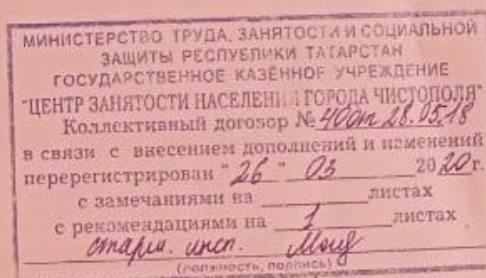 МИНИСТЕРСТВО ТРУДА, ЗАНЯТОСТИ И СОЦИАЛЬНОЙ
ЗАЩИТЫ РЕСПУБЛИКИ ТАТАРСТАН
ГОСУДАРСТВЕННОЕ КАЗЁННОЕ УЧРЕЖДЕНИЕ
"ЦЕНТР ЗАНЯТОСТИ НАСЕЛЕНИЯ ГОРОДА ЧИСТОПОЛЯ"
Коллективный договор № 40 от 28.05.18
в связи с внесением дополнений и изменений
перерегистрирован "26" 03 2020 г.
с замечаниями на листах
с рекомендациями на 1 листах
старш. инсп.
(должность, подпись)